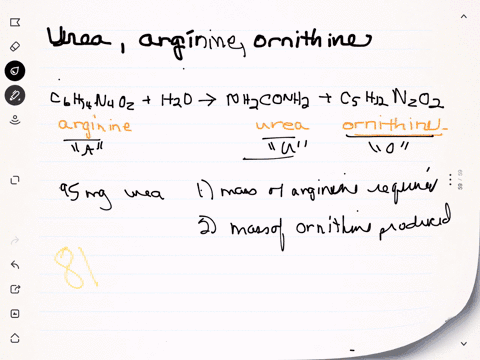 Urea, arginine, ornithine
C6H14N4O2 + H2O → NH2CONH2 + C5H12N2O2
arginine urea ornithine
"A" "U" "O"
95 mg urea 1) mass of arginine required
2) mass of ornithine produced
81